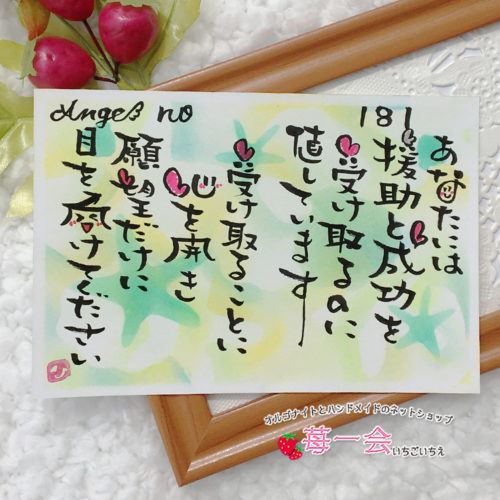 Angel no 181
あなたには
援助と成功を
受け取るのに
値しています
受け取ることに
心を開き
願望だけに
目を向けてください
オルゴナイトとハンドメイドのネットショップ
苺一会いちごいちえ